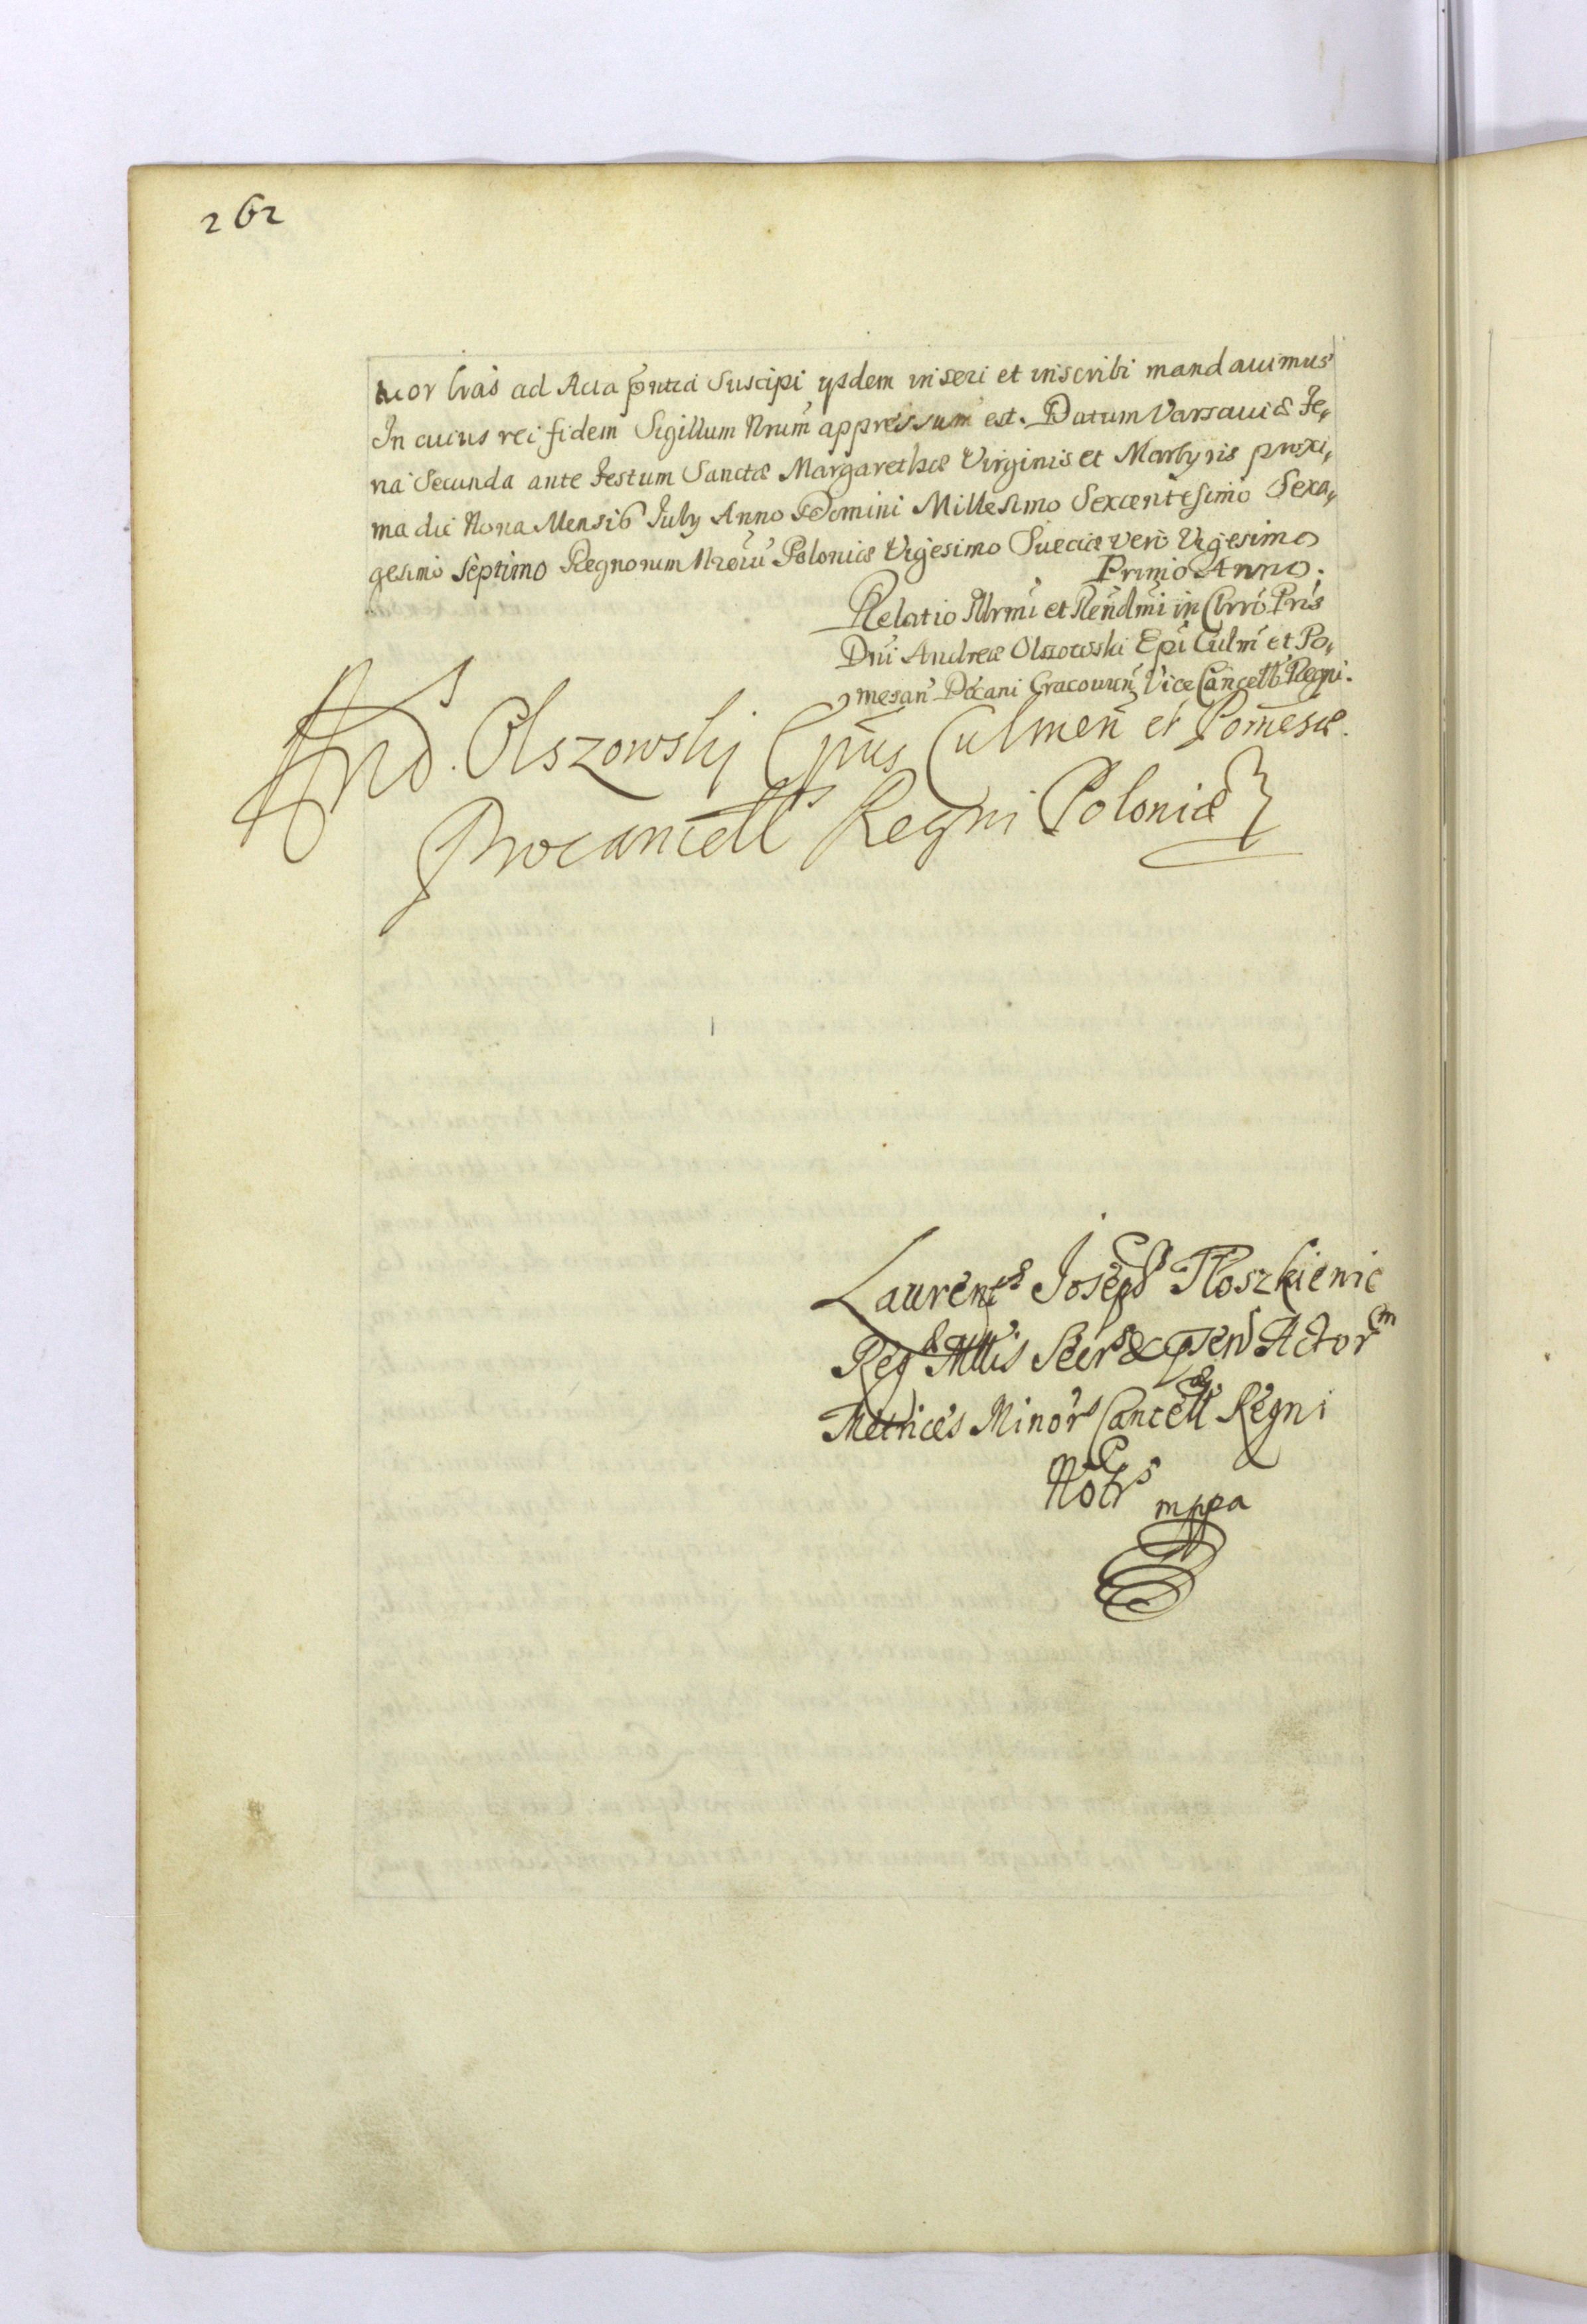 262
tuor lras ad Acta pñtia Suscipi ysdem inseri et inscribi mandauimus
In cuius rei fidem Sigillum Nrum appressum est. Datum Varsauiæ Fe„
ria Secunda ante Festum Sanctæ Margarethæ Virginis et Martyris proxi„
ma die Nona Mensis July Anno Domini Millesimo Sexcentesimo Sexa„
gesimo Septimo Regnorum Nrorũ Poloniæ Vigesimo Sueciæ vero Vigesimo
Primo Anno.
Relatio Illrmi et Rendmi in Chrro Pris
Dni Andreæ Olszowski Epi Culm̃ et Po„
mesañ Decani Cracouieñ Vice Cancell Regni.
And. Olszowskj Epũs Culmeñ et Pomesæ.
Procancells Regni Poloniæ
Laurens Joseph Ploszkienic
Reg Mttis Secrs & psen Actorm
Metrices Minors Cancell Regni
Notrs mppa